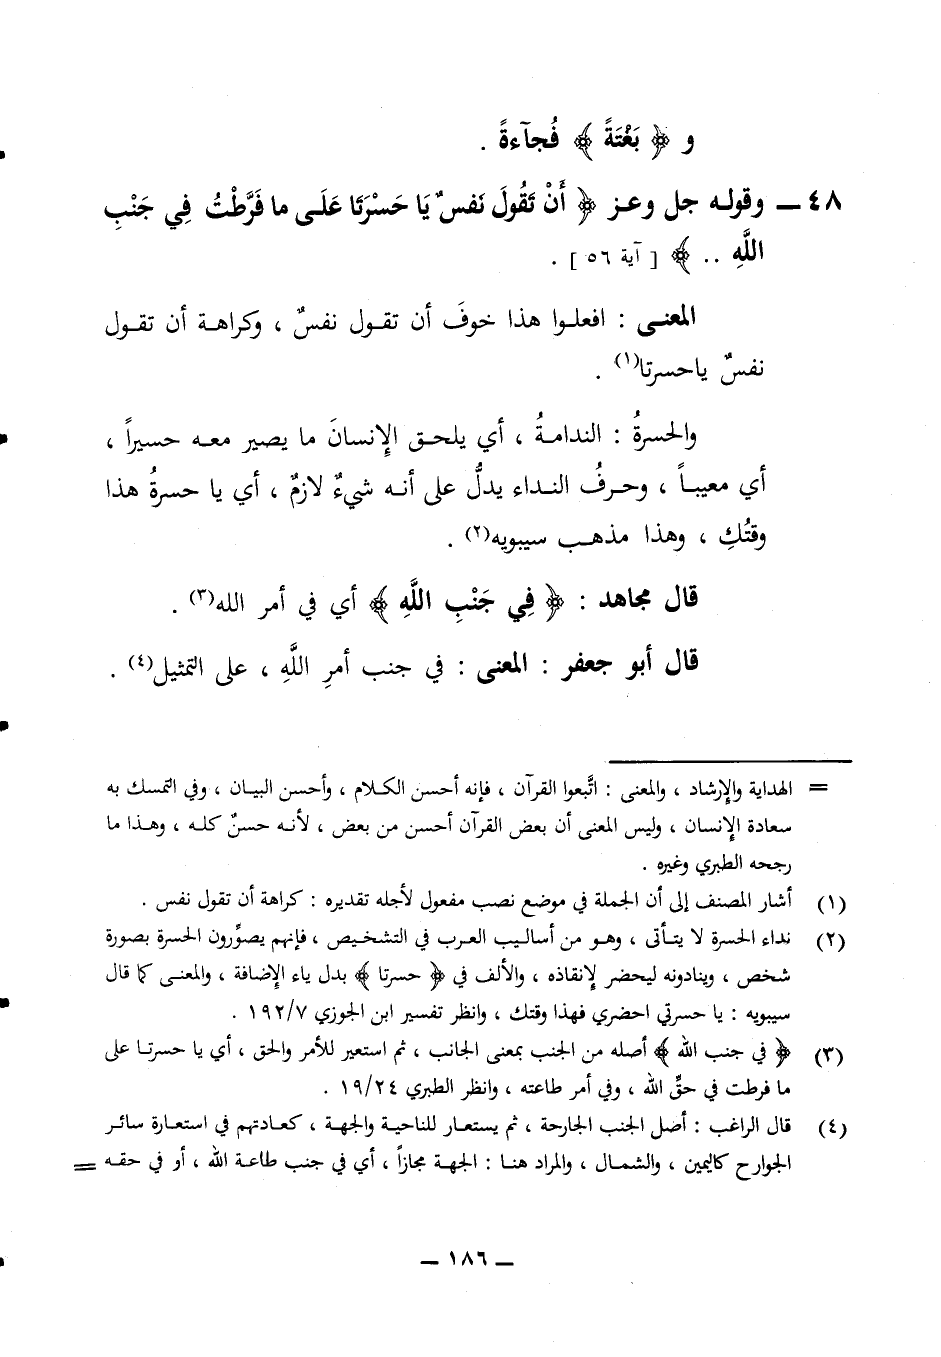 و ﴿ بَغْتَةً ﴾ فُجآءةً .
٤٨ ــ وقوله جل وعز ﴿ أَنْ تَقُولَ نَفسٌ يَا حَسْرَتَا عَلَى ما فَرَّطْتُ فِي جَنْبِ
اللَّهِ .. ﴾ [ آية ٥٦ ] .
المعنى : افعلوا هذا خوفَ أن تقول نفسٌ ، وكراهة أن تقول
نفسٌ ياحسرتا(١) .
والحسرةُ : الندامةُ ، أي يلحق الإنسانَ ما يصير معه حسيراً ،
أي معيباً ، وحرفُ النداء يدلُّ على أنه شيءٌ لازمٌ ، أي يا حسرةُ هذا
وقتُكِ ، وهذا مذهب سيبويه(٢) .
قال مجاهد : ﴿ فِي جَنْبِ اللَّهِ ﴾ أي في أمر الله(٣) .
قال أبو جعفر : المعنى : في جنب أمرِ اللَّهِ ، على التمثيل(٤) .
= الهداية والإرشاد ، والمعنى : اتَّبعوا القرآن ، فإنه أحسن الكلام ، وأحسن البيان ، وفي التمسك به
سعادة الإنسان ، وليس المعنى أن بعض القرآن أحسن من بعض ، لأنه حسنٌ كله ، وهذا ما
رجحه الطبري وغيره .
(١) أشار المصنف إلى أن الجملة في موضع نصب مفعول لأجله تقديره : كراهة أن تقول نفس .
(٢) نداء الحسرة لا يتأتى ، وهو من أساليب العرب في التشخيص ، فإنهم يصوِّرون الحسرة بصورة
شخص ، وينادونه ليحضر لإنقاذه ، والألف في ﴿ حسرتا ﴾ بدل ياء الإضافة ، والمعنى كما قال
سيبويه : يا حسرتي احضري فهذا وقتك ، وانظر تفسير ابن الجوزي ١٩٢/٧ .
(٣) ﴿ في جنب الله ﴾ أصله من الجنب بمعنى الجانب ، ثم استعير للأمر والحق ، أي يا حسرتا على
ما فرطت في حقِّ الله ، وفي أمر طاعته ، وانظر الطبري ١٩/٢٤ .
(٤) قال الراغب : أصل الجنب الجارحة ، ثم يستعار للناحية والجهة ، كعادتهم في استعارة سائر
الجوارح كاليمين ، والشمال ، والمراد هنا : الجهة مجازاً ، أي في جنب طاعة الله ، أو في حقه =
ــ ١٨٦ ــ